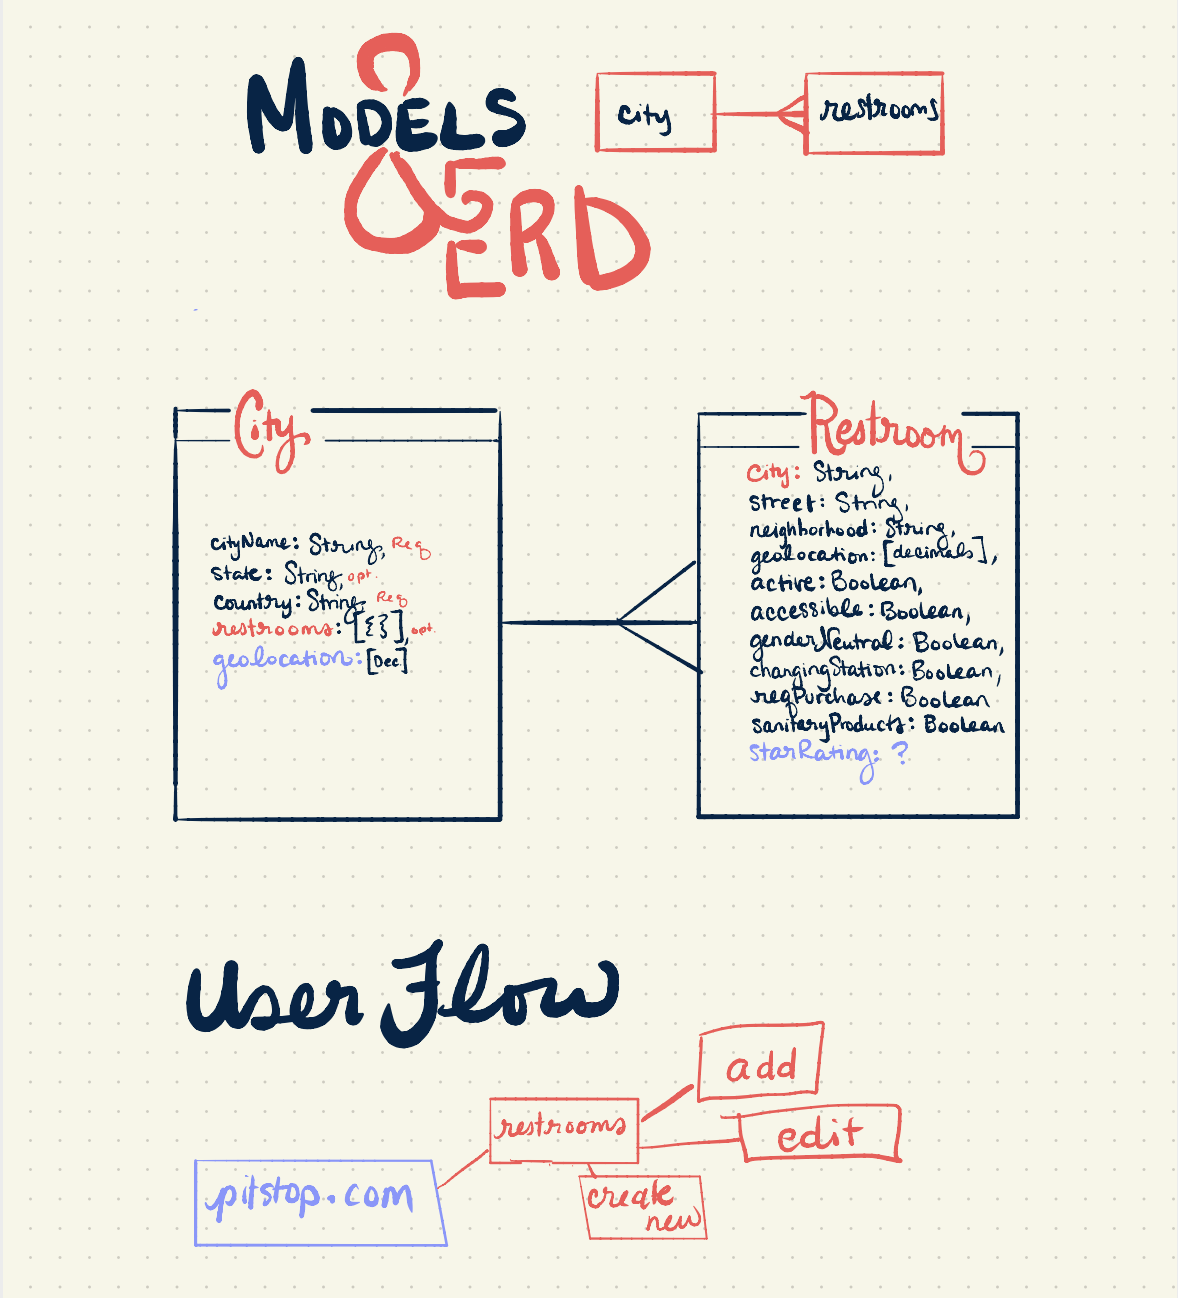 MODELS
&
ERD
city
restrooms
City
cityName: String, Req
state: String, opt.
country: String, Req
restrooms: [{}], opt.
geolocation: [Dec]
Restroom
City: String,
street: String,
neighborhood: String,
geolocation: [decimals],
active: Boolean,
accessible: Boolean,
genderNeutral: Boolean,
changingStation: Boolean,
reqPurchase: Boolean
sanitaryProducts: Boolean
StarRating: ?
User Flow
pitstop.com
restrooms
add
edit
create
new